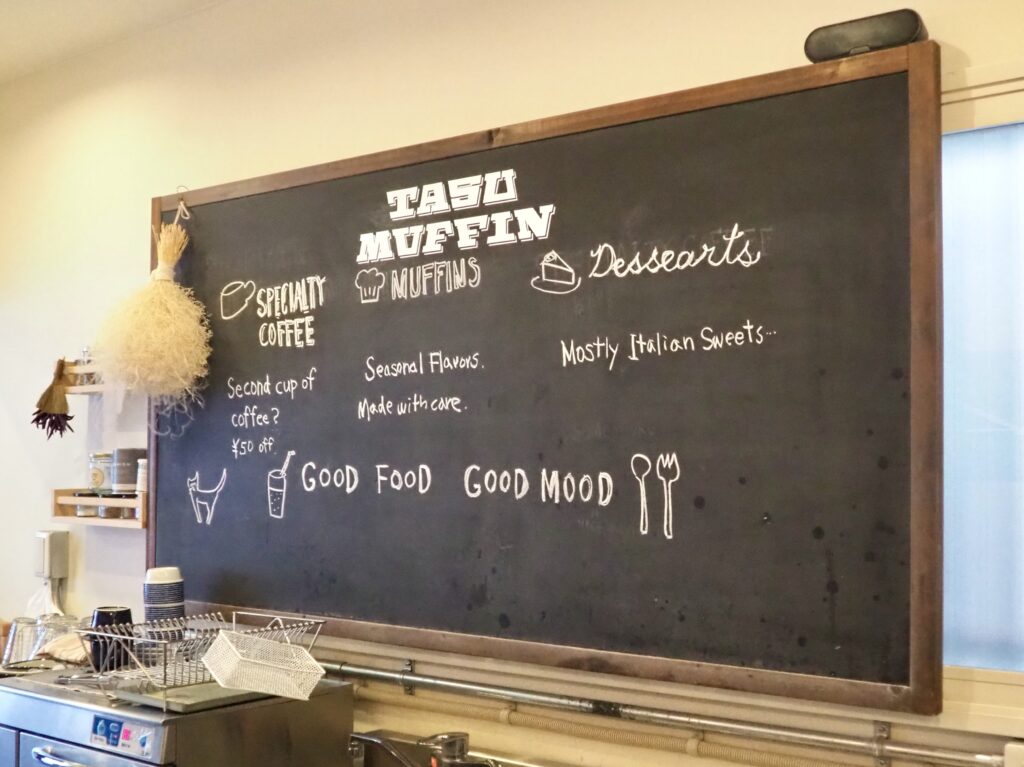 TASU
MUFFIN
SPECIALTY
COFFEE
Second cup of
coffee?
¥50 off.
MUFFINS
Seasonal Flavors.
Made with care.
Dessearts
Mostly Italian Sweets...
GOOD FOOD GOOD MOOD